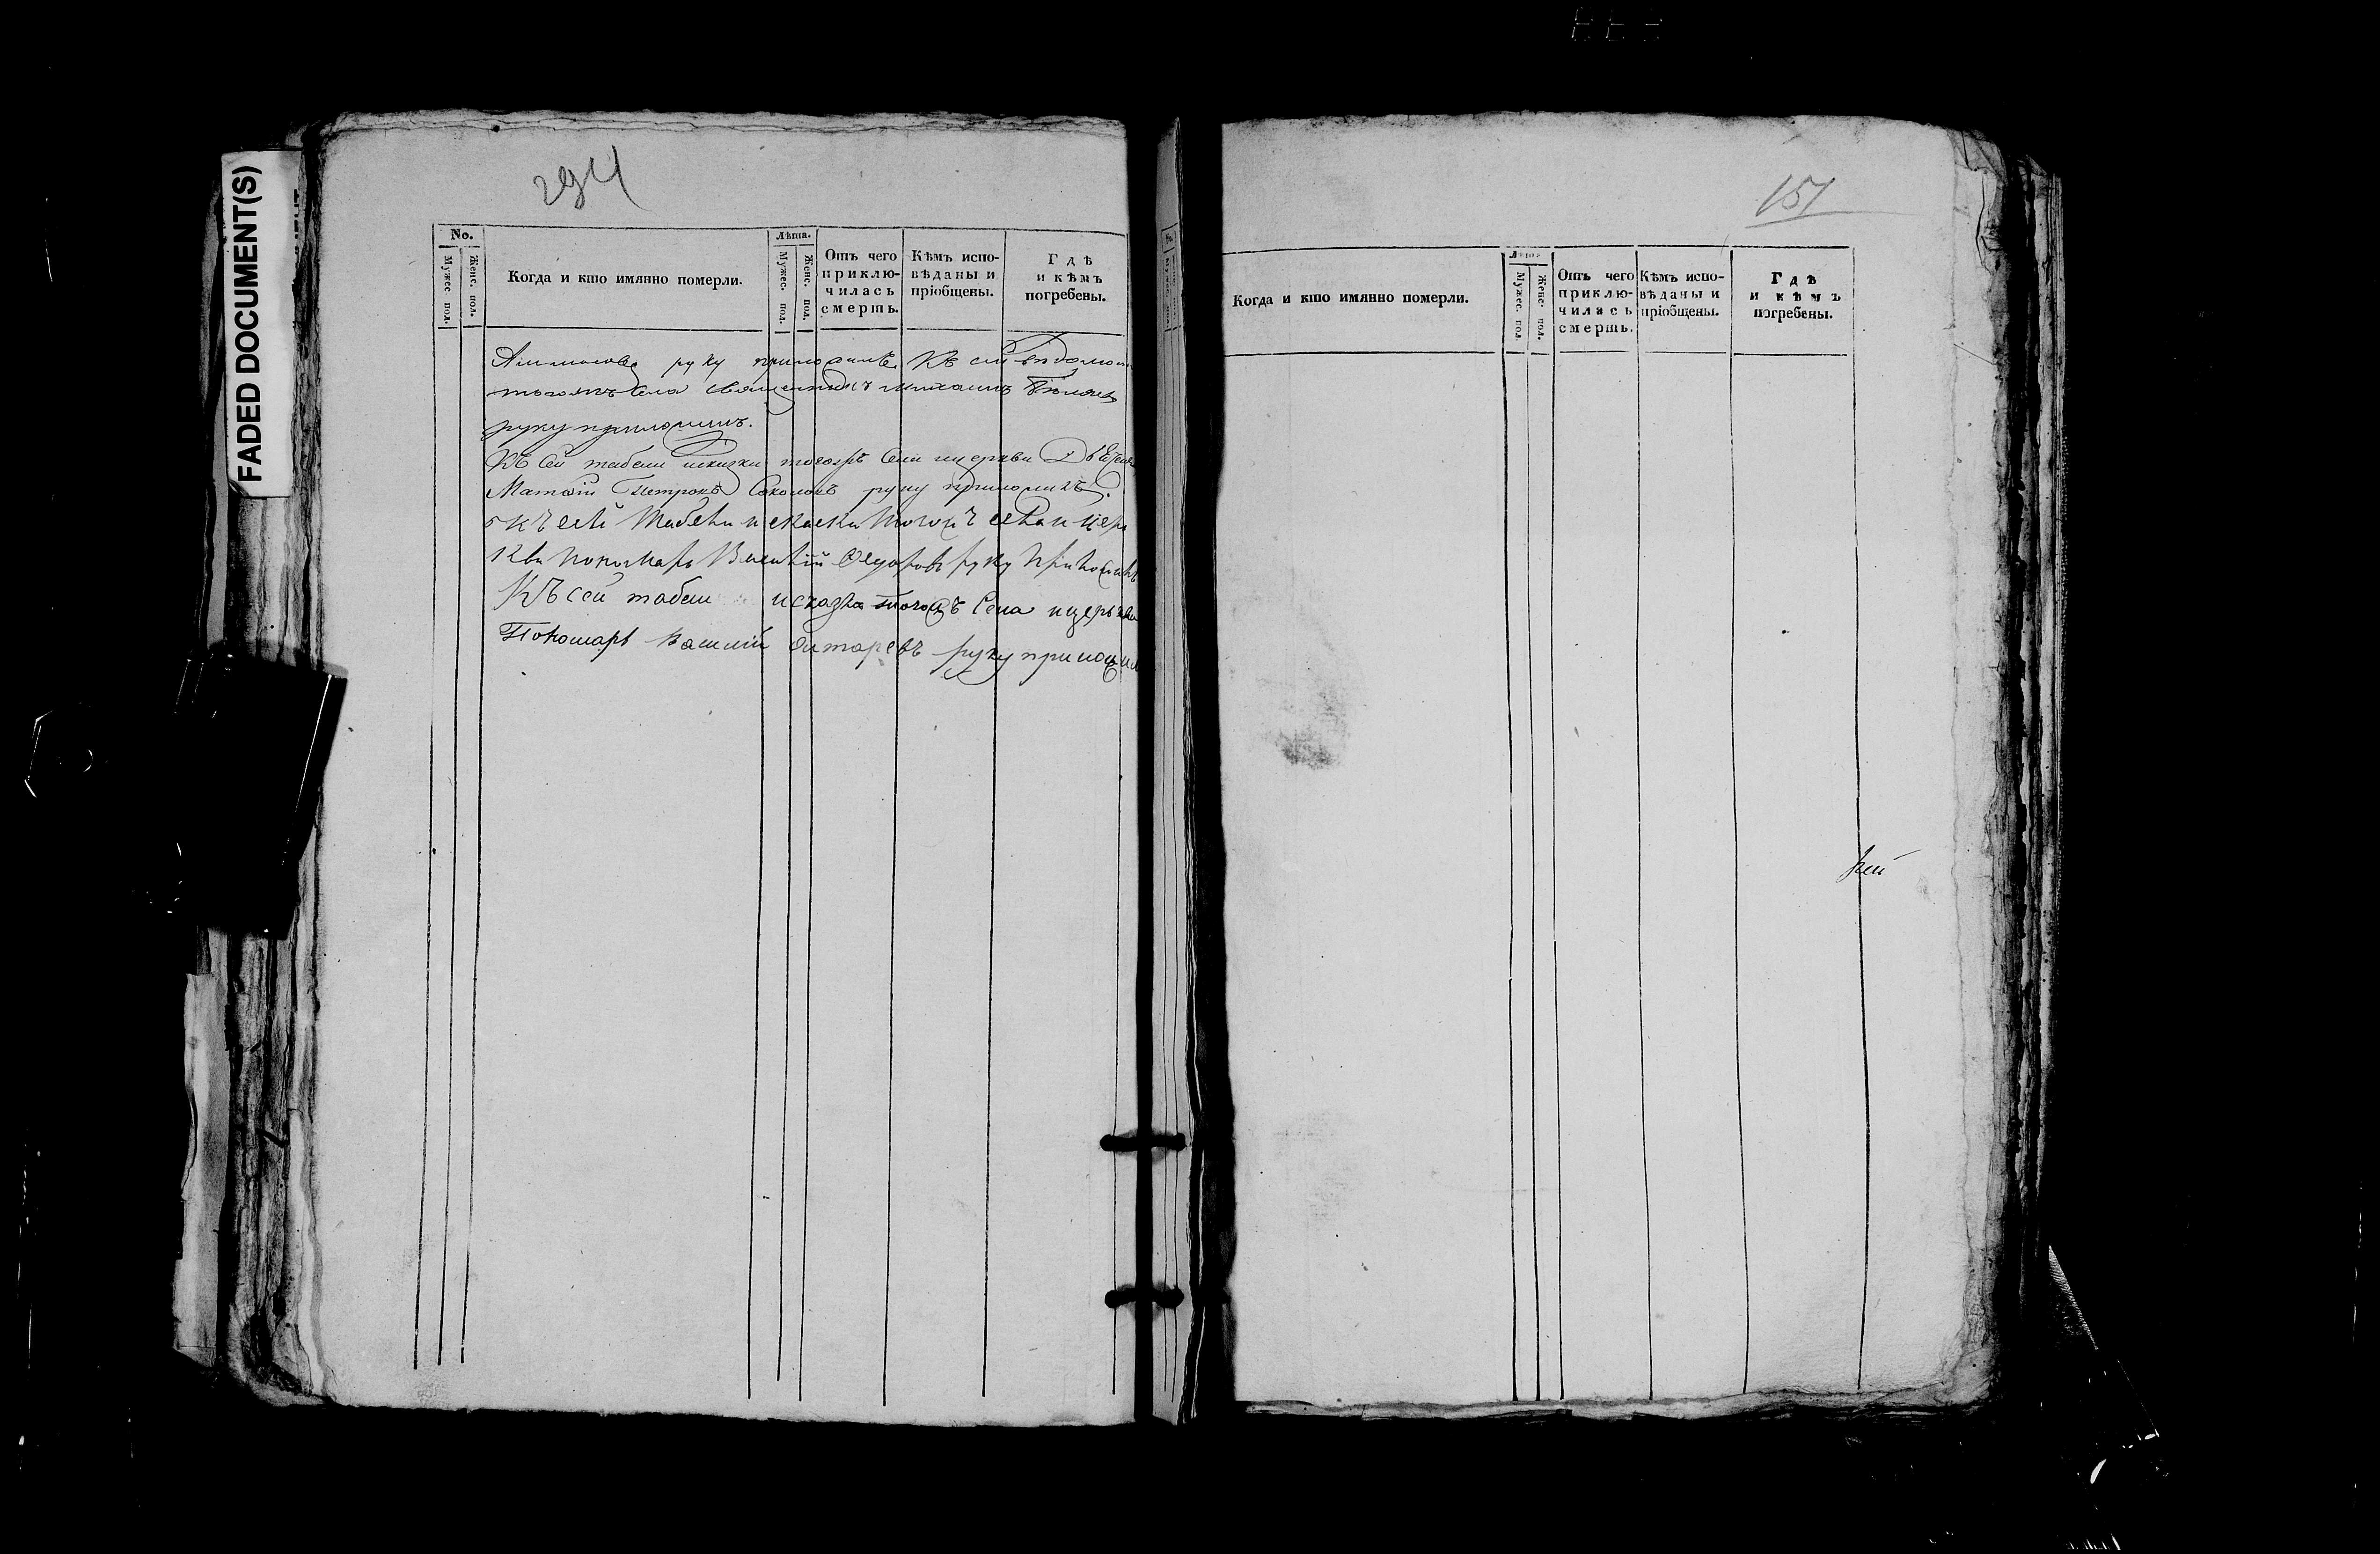 FADED DOCUMENT(S)
294
No.
Мужес. пол.
Женс. пол.
Когда и кто имянно померли.
Лѣта.
Мужес. пол.
Женс. пол.
Отъ чего приклю-
чилась
смерть.
Кѣмъ испо-
вѣданы и
пріобщены.
Гдѣ
и кѣмъ
погребены.
руку приложилъ Къ сей вѣдомости
тогожъ села священникъ Михаилъ
руку приложилъ.
Къ сей табели исказки тогожъ села ицеркви
Матвѣй Петровъ Соколовъ руку приложилъ.
Къ сей табели исказки тогожъ села и цер
кви пономарь Василій Ѳедоровъ руку приложилъ
Къ сей табели исказке тогожъ села ицеркви
Пономарь Василій руку приложил
151
Когда и кто имянно померли.
Лѣта
Мужес. пол
Женс. пол.
Отъ чего
приклю-
чилась
смерть.
Кѣмъ испо-
вѣданы и
пріобщены.
Гдѣ
и кѣмъ
погребены.
рей